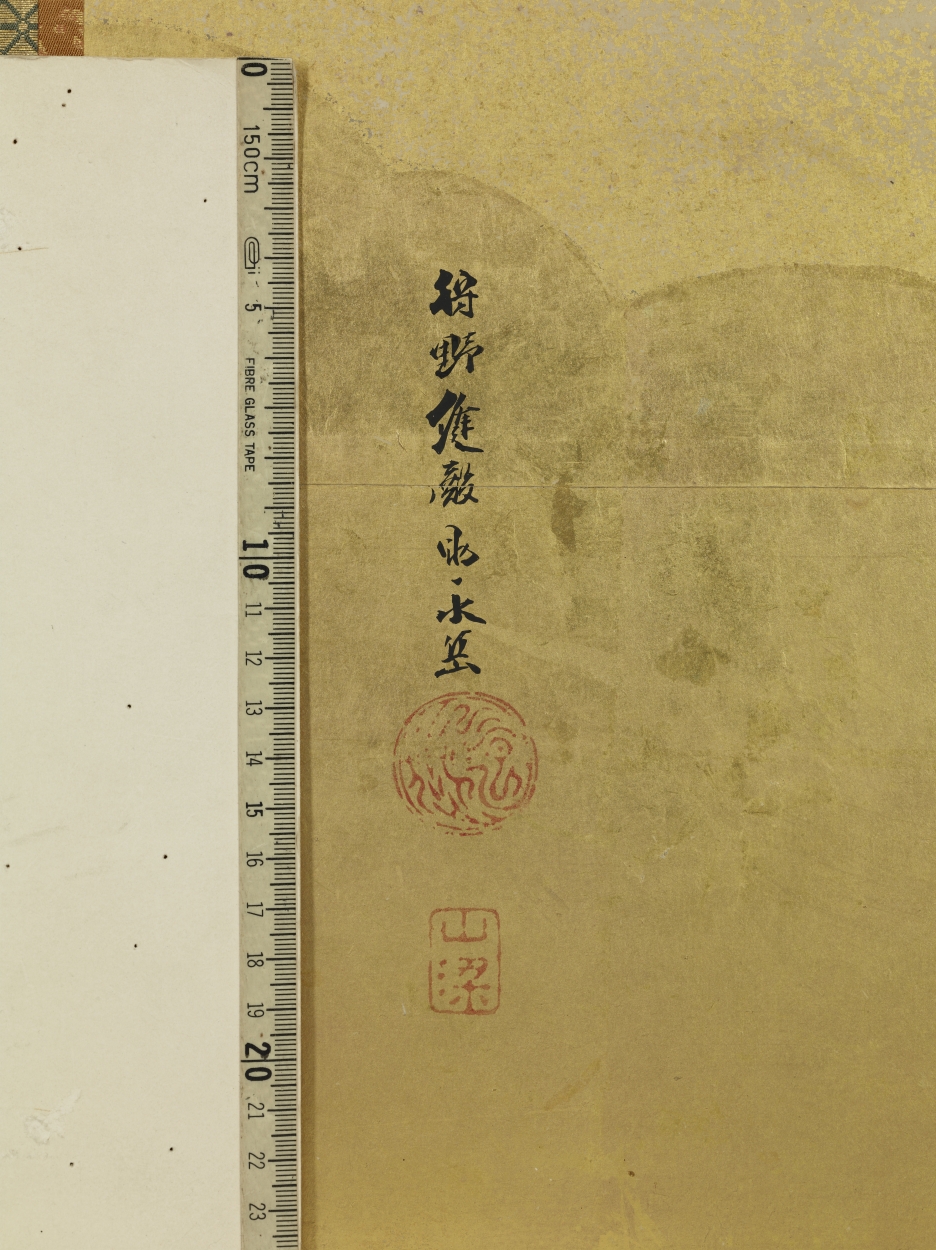 0
150cm
5
FIBRE GLASS TAPE
10
11
12
13
14
15
16
17
18
19
20
21
22
23
狩野縫殿助永岳
山梁